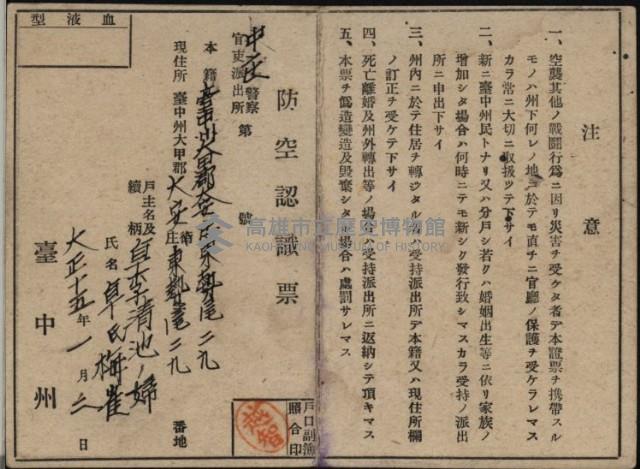 注意
一、空襲其他ノ戰鬪行爲ニ因リ災害ヲ受ケタ者デ本證票ヲ携帶スル
モノハ州下何レノ地ニ於テモ直チニ官廳ノ保護ヲ受ケラレマス
カラ常ニ大切ニ取扱ツテ下サイ
二、新ニ臺中州民トナリ又ハ分戶シ若クハ婚姻出生等ニ依リ家族ノ
增加シタ場合ハ何時ニテモ新シク發行致シマスカラ受持ノ派出
所ニ申出下サイ
三、州內ニ於テ住居ヲ轉ジタルトキハ受持派出所デ本籍又ハ現住所欄
ノ訂正ヲ受ケテ下サイ
四、死亡離婚及州外轉出等ノ場合ハ受持派出所ニ返納シテ頂キマス
五、本票ヲ僞造變造及毀棄シタ場合ハ處罰サレマス
血液型
防空認識票
警察
官吏派出所
第 號
本籍 東勢尾二九
現住所 臺中州大甲郡大安庄東勢尾二九
番地
戶主名及續柄 清池ノ婦
氏名 卓氏梅雀
大正十五年一月二日
臺中州
戶口副簿
照合印
越智
高雄市立歷史博物館
KAOHSIUNG MUSEUM OF HISTORY